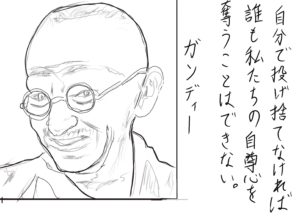 自分で投げ捨てなければ
誰も私たちの自尊心を
奪うことはできない。
ガンディー